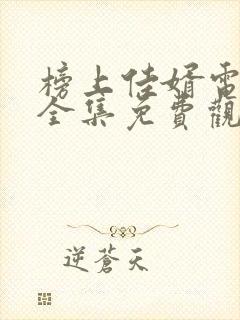 榜上佳婿電
全集免費觀
逆蒼天